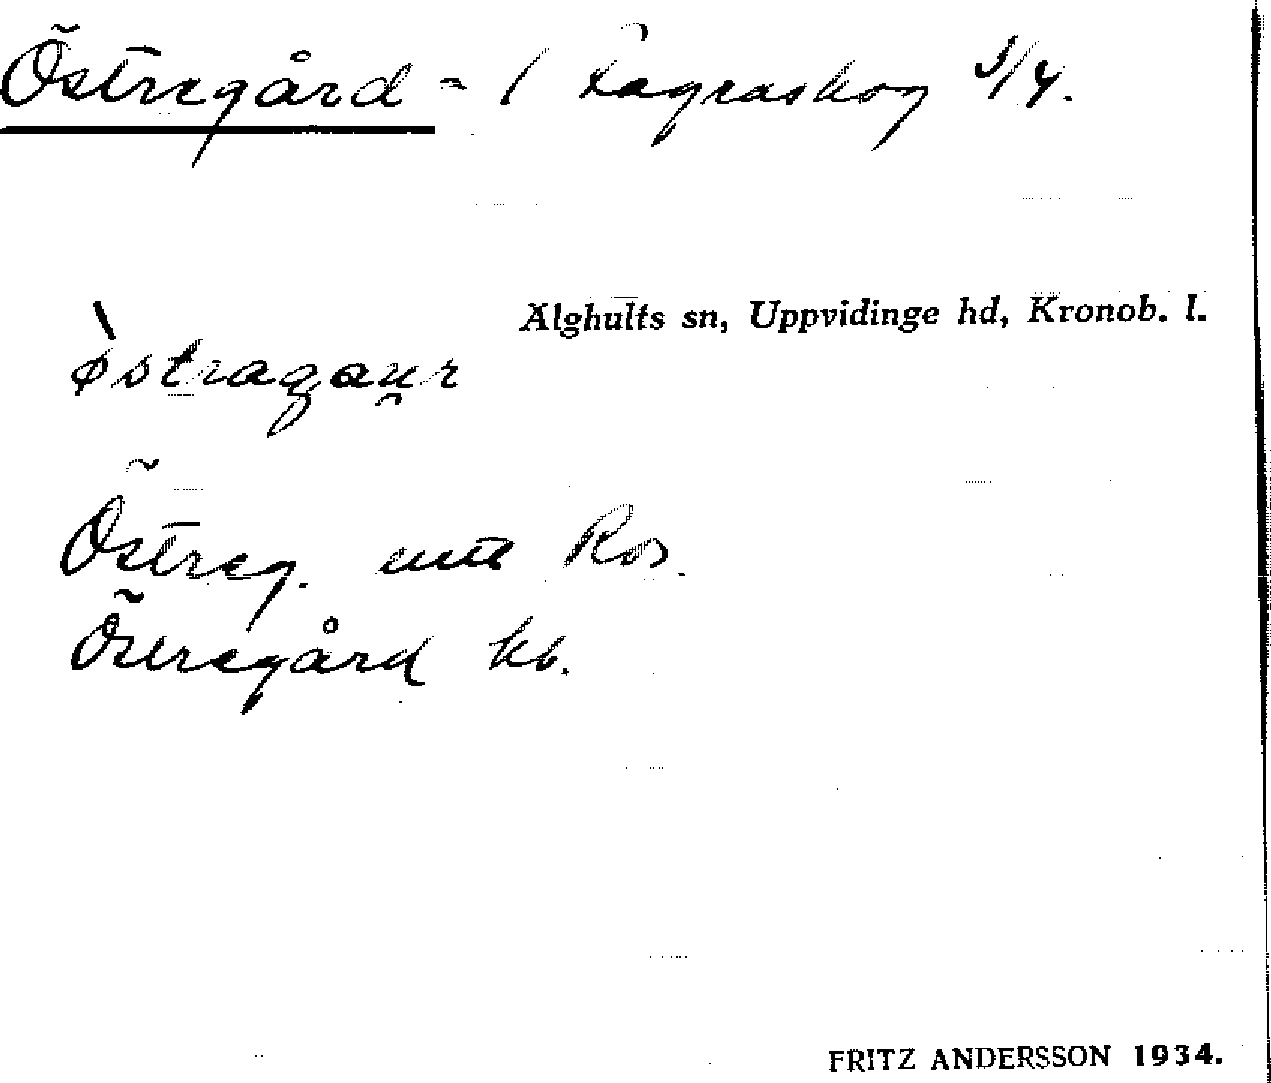 Östregård = 1 Fagraskog 3/4.
Älghults sn, Uppvidinge hd, Kronob. l.
Östreg.
Östregård kb.
FRITZ ANDERSSON 1934.